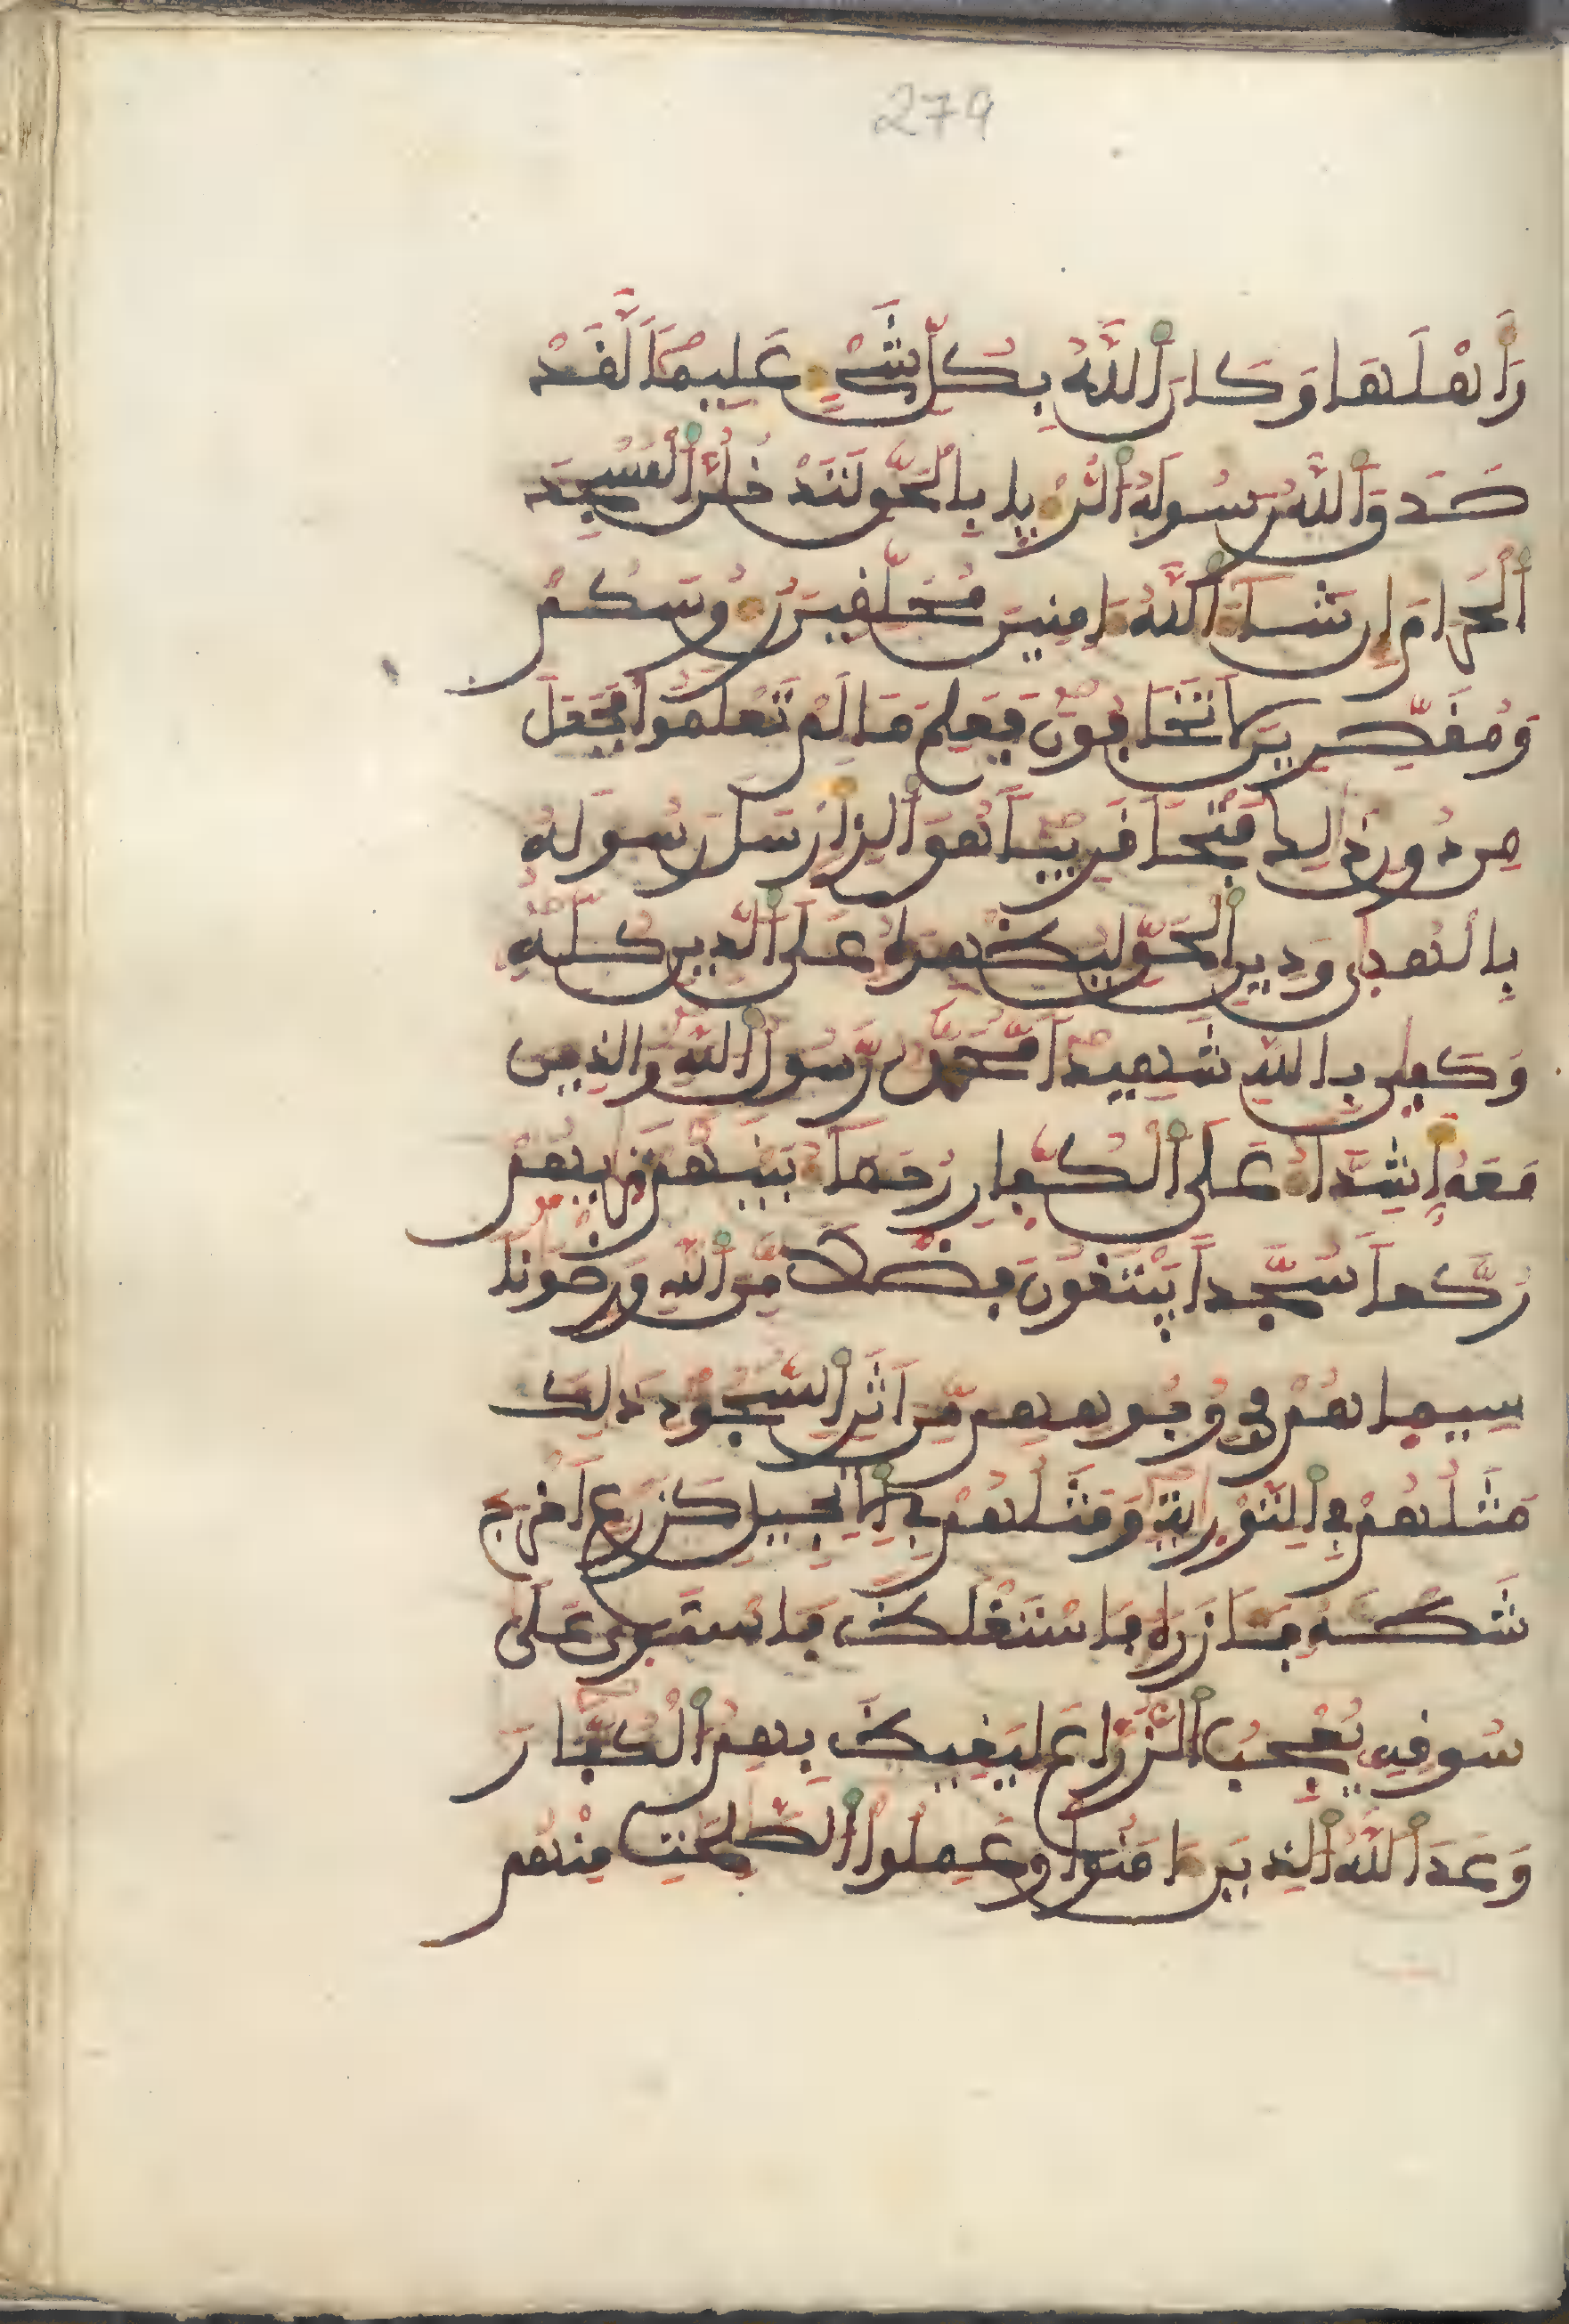 279
وَأَهْلَهَا وَكَانَ اَللَّهُ بِكُلِّ شَےْءٍ عَلِيماً لَّقَدْ
صَدَقَ اَللَّهُ رَسُولَهُ اُلرُّءْيِا بِالْحَقِّ لَتَدْخُلُنَّ اَلْمَسْجِدَ
اَلْحَرَامَ إِن شَآءَ اَللَّهُ ءَامِنِينَ مُحَلِّقِينَ رُءُوسَكُمْ
وَمُقَصِّرِينَ لَا تَخَافُونَ فَعَلِمَ مَا لَمْ تَعْلَمُوا فَجَعَلَ
مِن دُونِ ذَٰلِكَ فَتْحاً قَرِيباً هُوَ اَلذِے أَرْسَلَ رَسُولَهُ
بِالْهُدِىٰ وَدِينِ اِلْحَقِّ لِيُظْهِرَهُ عَلَى اَلدِّينِ كُلِّهِ
وَكَفِىٰ بِاللَّهِ شَهِيداً مُّحَمَّدٌ رَّسُولُ اُللَّهِ وَالذِينَ
مَعَهُ أَشِدَّآءُ عَلَى اَلْكُفِّارِ رُحَمَآءُ بَيْنَهُمْ تَرِىٰهُمْ
رُكَّعاً سُجَّداً يَبْتَغُونَ فَضْلاً مِّنَ اَللَّهِ وَرِضْوَاناً
سِيمِاهُمْ فِے وُجُوهِهِم مِّنَ اَثَرِ اِلسُّجُودِ ذَٰلِكَ
مَثَلُهُمْ فِے اِلتَّوْرِىٰةِ وَمَثَلُهُمْ فِے اِلْإِنجِيلِ كَزَرْعٍ أَخْرَجَ
شَطْـَٔهُ فَـَٔازَرَهُ فَاسْتَغْلَظَ فَاسْتَوِىٰ عَلَىٰ
سُوقِهِ يُعْجِبُ اُلزُّرَّاعَ لِيَغِيظَ بِهِمُ اُلْكُفَّارَ
وَعَدَ اَللَّهُ اُلذِينَ ءَامَنُوا وَعَمِلُوا اُلصَّٰلِحَٰتِ مِنْهُم